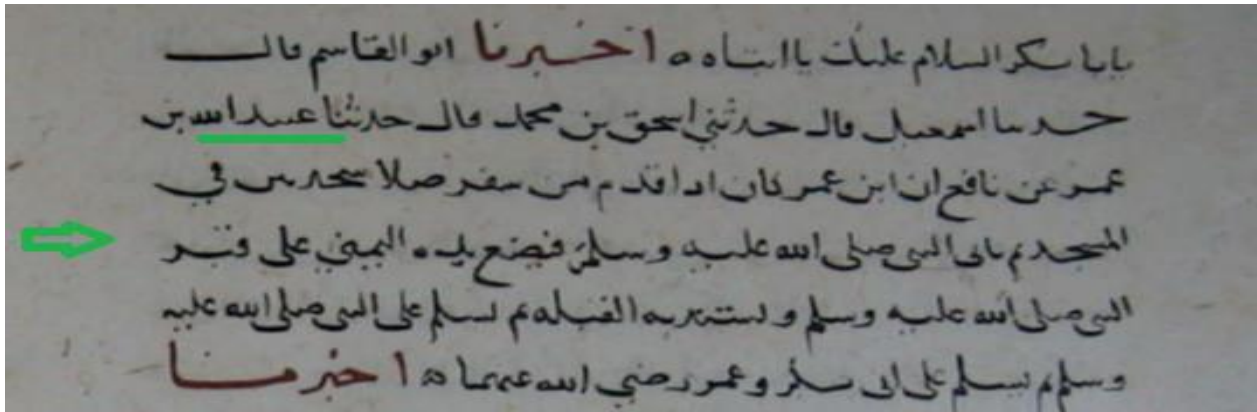 يا با بكر السلام عليك يا ابتاه ه اخبرنا ابو القاسم قال
حدثنا اسمعيل قال حدثني اسحق بن محمد قال حدثنا عبيد الله بن
عمر عن نافع ان ابن عمر كان اذا قدم من سفر صلا سجدتين في
المسجد ثم ياتي النبي صلى الله عليه وسلم فيضع يده اليمنى على قبر
النبي صلى الله عليه وسلم ويستدبر القبله ثم يسلم على النبي صلى الله عليه
وسلم ثم يسلم على ابي بكر وعمر رضي الله عنهما ه اخبرنا